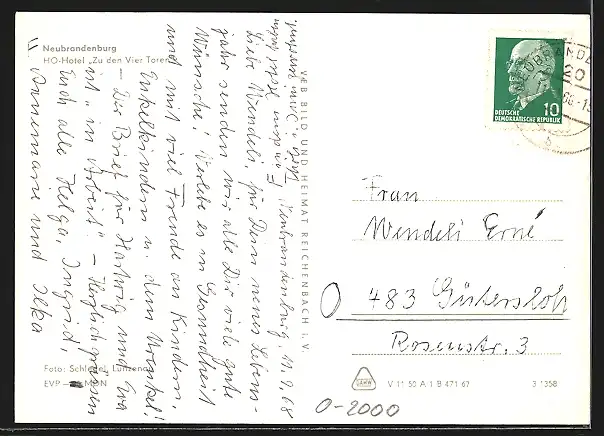 Neubrandenburg
HO-Hotel „Zu den Vier Toren"
Neubrandenburg, 11.2.68
Liebe Wendeli, für Dein neues Lebens-
jahr senden wir alle Dir viele gute
Wünsche! Verlebe es in Gesundheit
und mit viel Freude an Kindern,
Enkelkindern u. dem Urenkel!
– Der Brief für Hartwig und Eva
ist "in Arbeit". – Herzlich grüssen
Euch alle Helga, Ingrid,
Annemarie und Ilka
Foto: Schlegel, Lunzenau
EVP
MDN
VEB BILD UND HEIMAT REICHENBACH i. V.
DEUTSCHE
DEMOKRATISCHE REPUBLIK
10
20
Frau
Wendeli Erné
483 Gütersloh
Rosenstr. 3
V 11 50 A 1 B 471 67
3 1358
0-2000